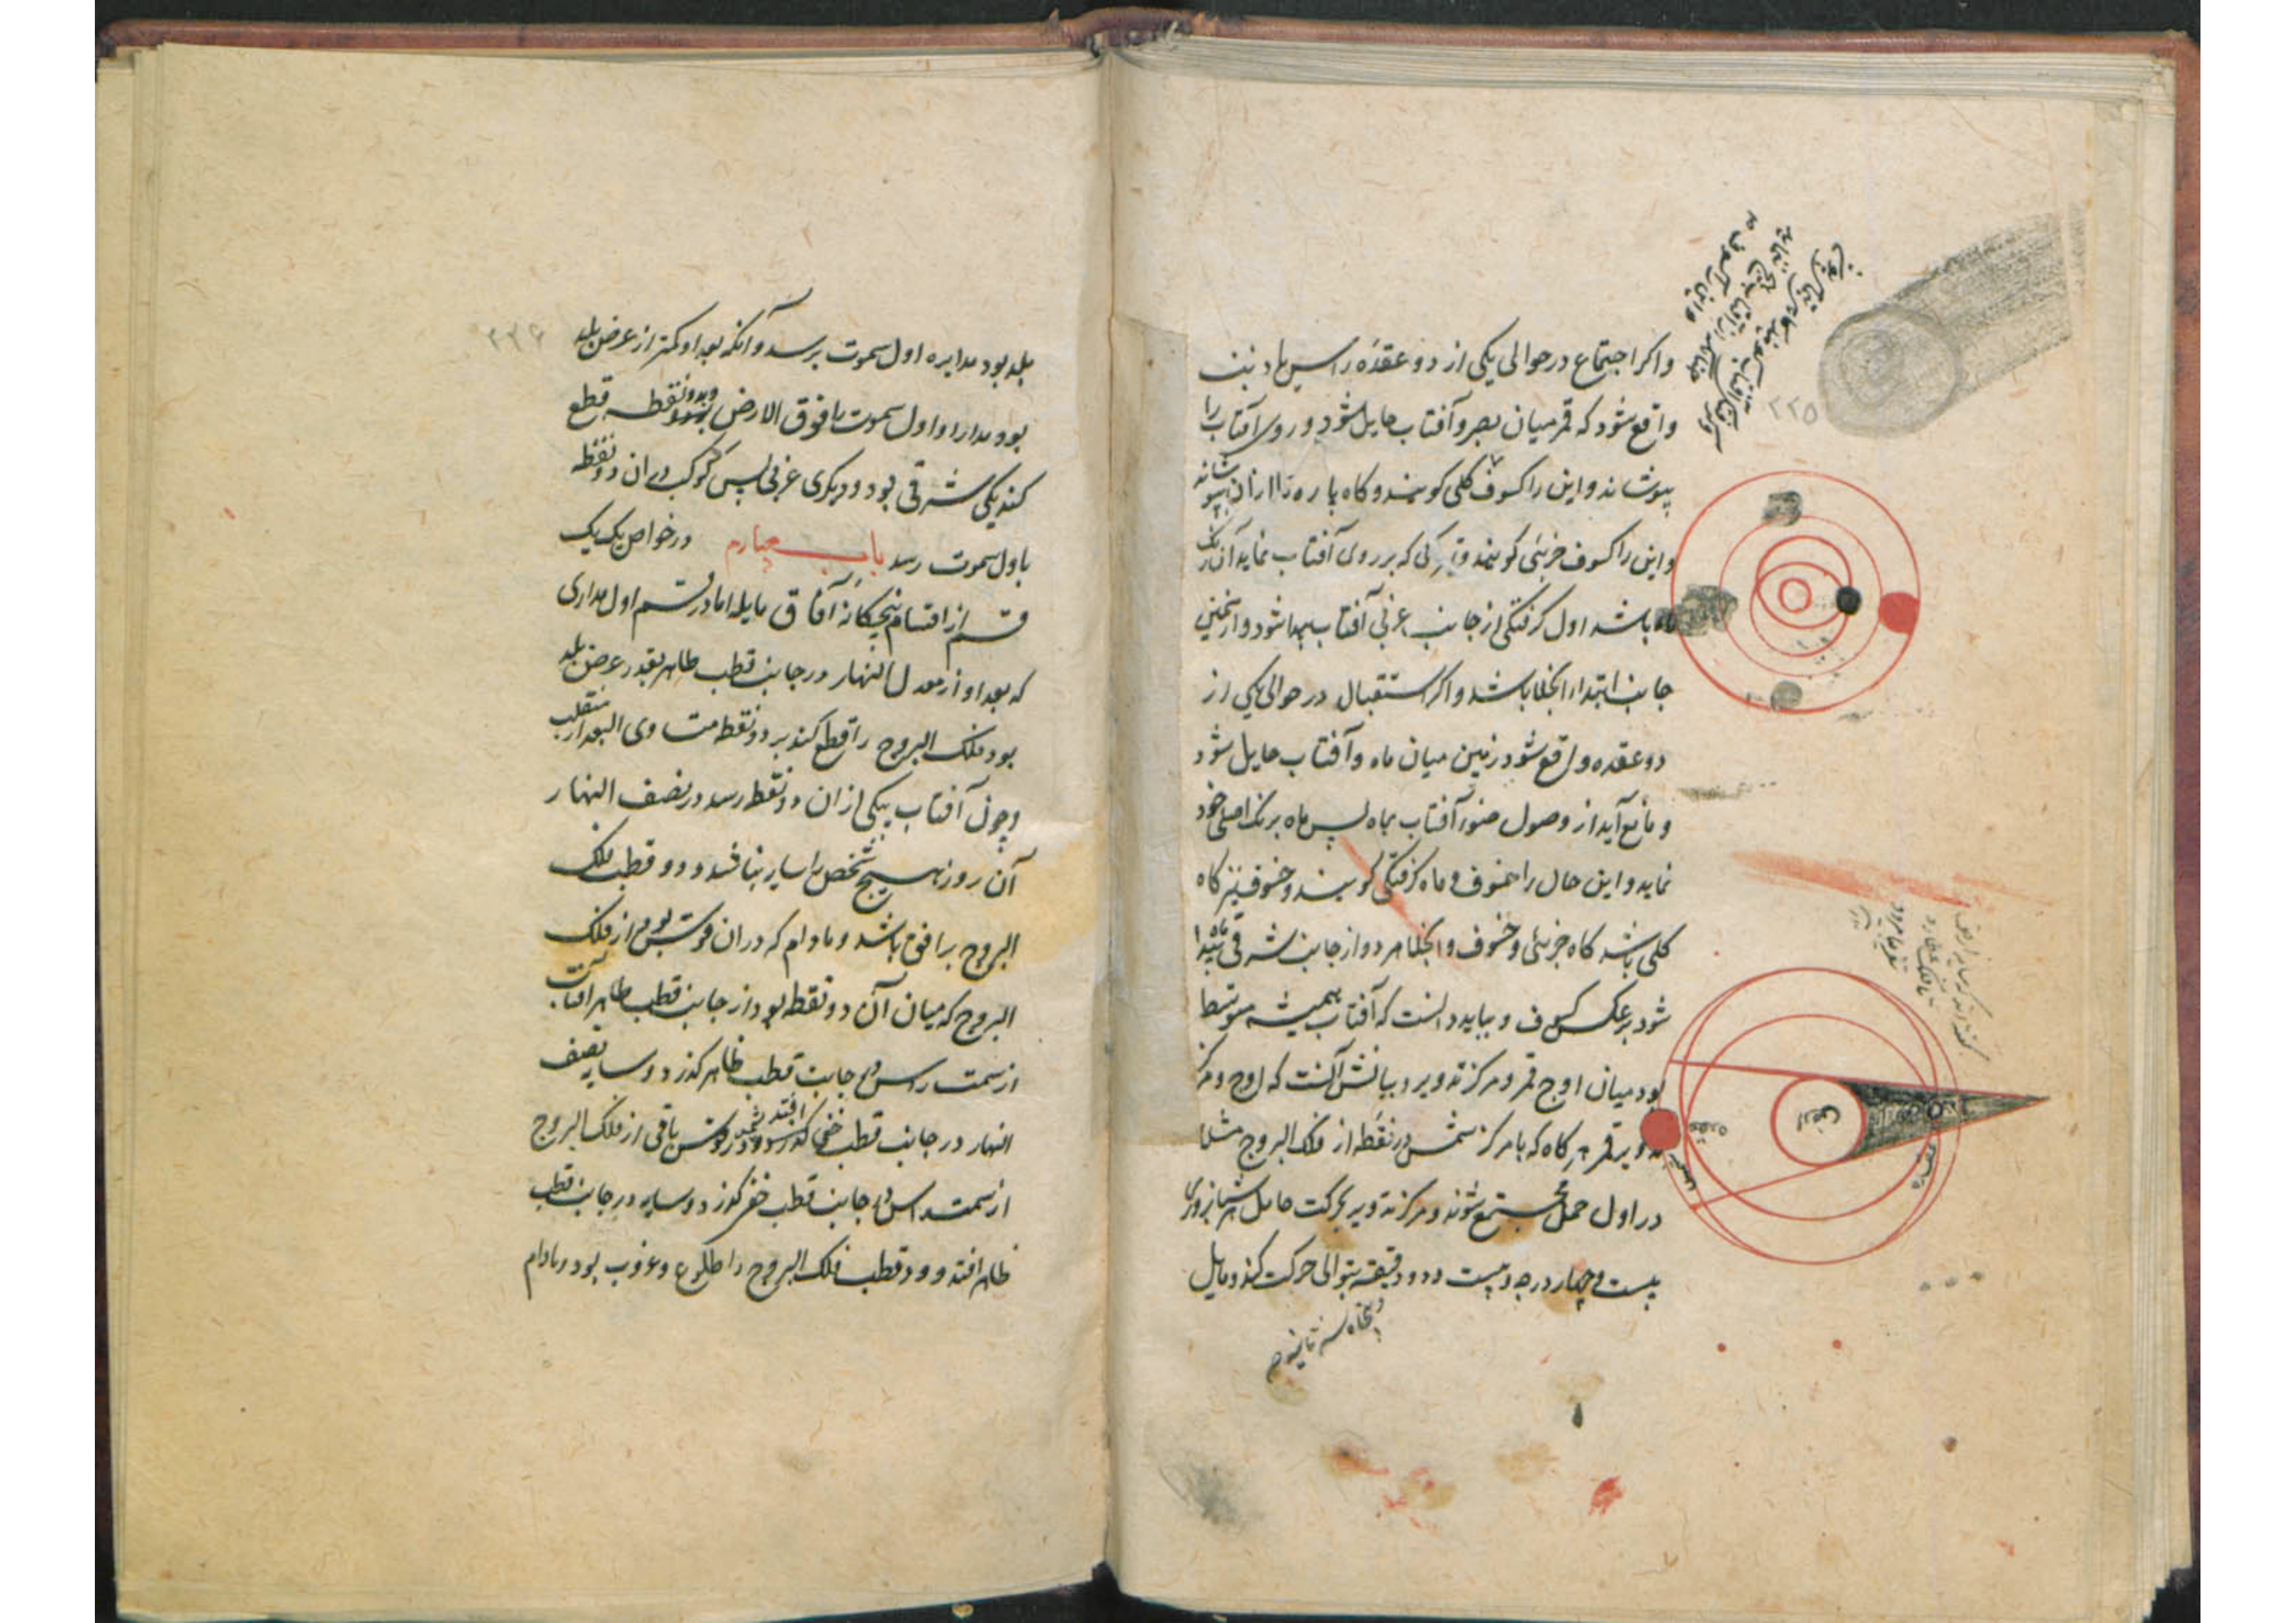 واکر اجتماع در حوالی یکی از دو عقدۀ راس یا ذنب
واقع شود که قمر میان بصر و آفتاب حایل شود و روی آفتاب را
بپوشاند و این را کسوف کلی کویند و کاه پاره را از آن بپوشاند
و این را کسوف جزیی کویند و تیرکی که بر روی آفتاب نماید آن رنک
ماه باشد اول کرفتکی از جانب غربی آفتاب پیدا شود و از همین
جانب ابتداء انجلا باشد و اکر استقبال در حوالی یکی از
دو عقده واقع شود زمین میان ماه و آفتاب حایل شود
و مانع آید از وصول ضوء آفتاب بماه پس ماه برنک اصلی خود
نماید و این حال را خسوف و ماه کرفتکی کویند و خسوف نیز کاه
کلی باشد کاه جزیی و خسوف و انجلا هر دو از جانب شرقی ماه پیدا
شود بر عکس کسوف و بباید دانست که آفتاب همیشه متوسط
بود میان اوج قمر و مرکز تدویر و بیانش آنست که اوج و مرکز
تدویر قمر هر کاه که با مرکز شمس در نقطۀ از فلک البروج مثلا
در اول حمل مجتمع شوند و مرکز تدویر بحرکت حامل هر شبانروزی
بیست و چهار درجه و بیست و دو دقیقه بتوالی حرکت کند و مایل
و پنجاه سه ثانیه
۲۲۵
ارض
عقده
شمس
عقده
۲۲۶
بلد بود مدایره اول سموت برسد و آنکه بعد او کمتر از عرض بلد
بود مدار او اول سموت را فوق الارض بدو نقطه قطع
کند یکی شرقی بود و دیکری غربی پس کوکب در ان دو نقطه
باول سموت رسد باب چهارم در خواص یک یک
قسم از اقسام پنجکانه آفاق مایله اما در قسم اول مداری
که بعد او از معدل النهار در جانب قطب ظاهر بقدر عرض بلد
بود فلک البروج را قطع کند بر دو نقطه متساوی البعد از منقلب
و چون آفتاب بیکی از ان دو نقطه رسد در نصف النهار
آن روز هیچ شخص را سایه نباشد و دو قطب فلک
البروج بر افق باشد و مادام که در ان قوس بود از فلک
البروج که میان آن دو نقطه بود از جانب قطب ظاهر آفتاب
از سمت راس در جانب قطب ظاهر کذرد و سایه نصف
النهار در جانب قطب خفی افتد و در قوس باقی از فلک البروج
از سمت راس در جانب قطب خفی کذرد و سایه در جانب قطب
ظاهر افتد و دو قطب فلک البروج را طلوع و غروب بود و مادام